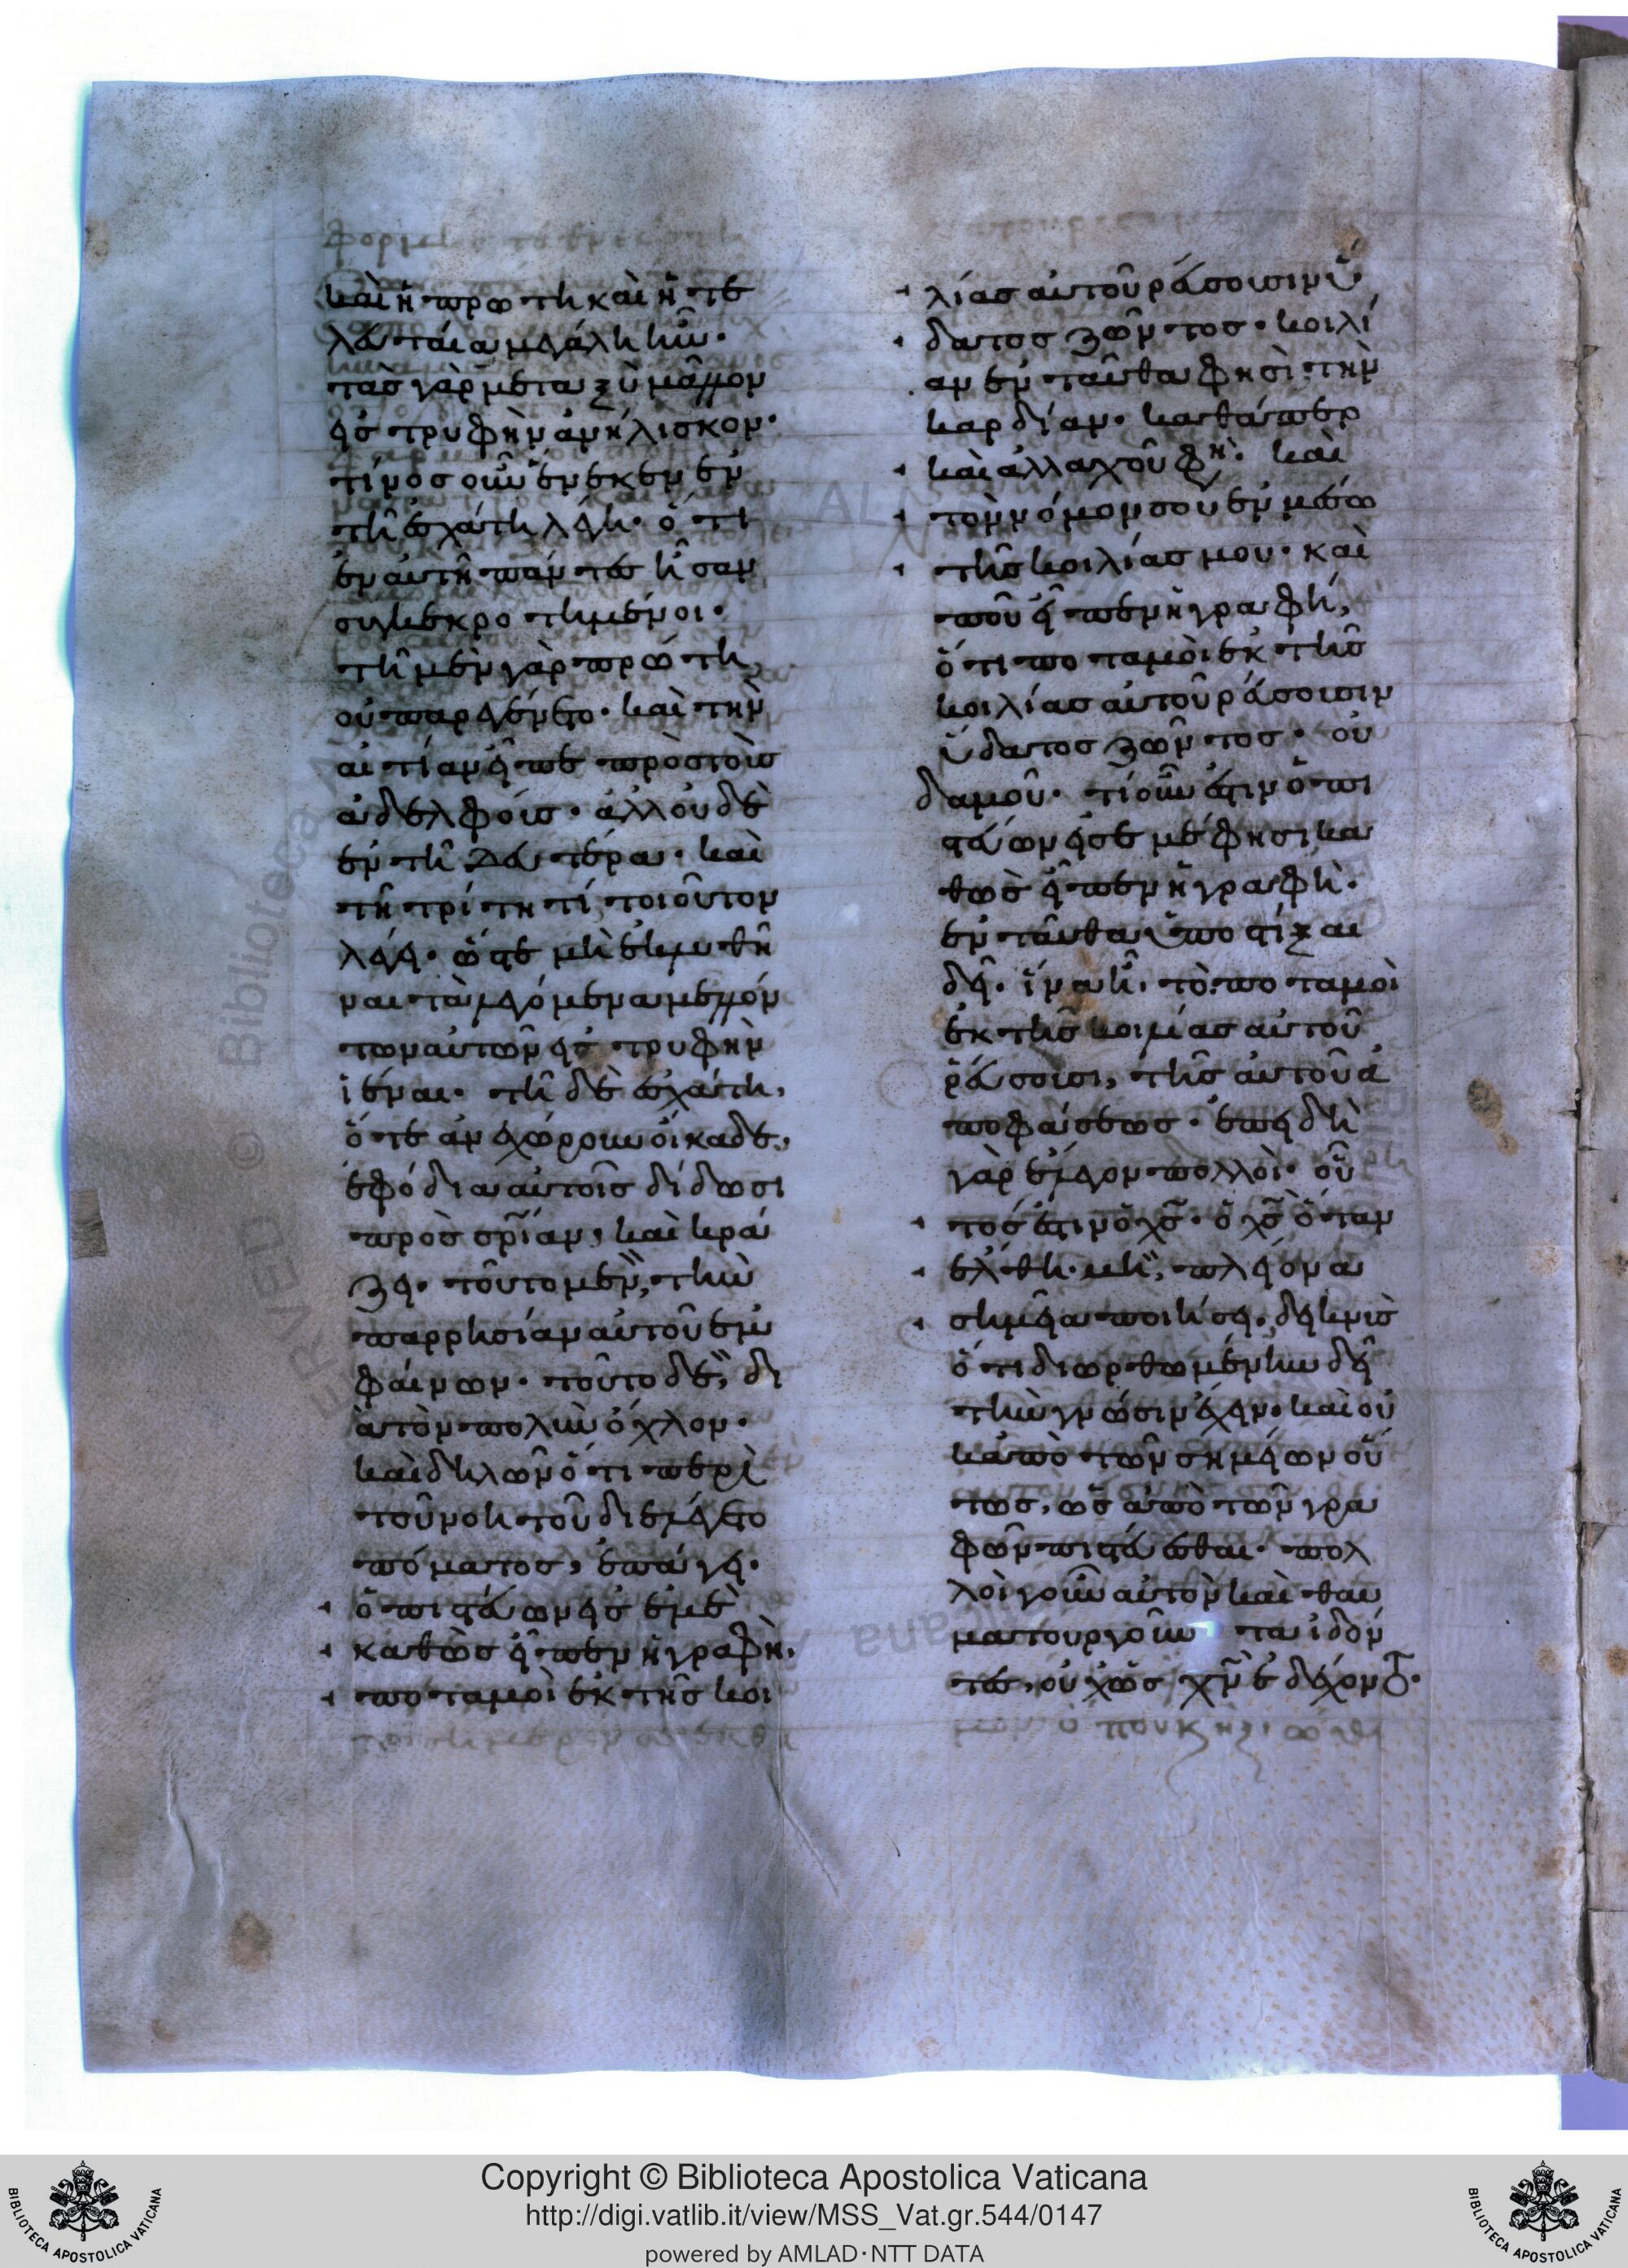 καὶ ἡ πρώτη καὶ ἡ τε
λευταία μεγάλη ἦν·
τὰς γὰρ μεταξὺ μᾶλλον
εἰς τρυφὴν ἀνήλισκον·
τίνος οὖν ἕνεκεν ἐν
τῆ ἐσχάτη λέγει· ὅτι
ἐν αὐτῆ πάντες ἦσαν
συγκεκροτημένοι·
τῆ μὲν γὰρ πρώτη,
οὐ παρεγένετο· καὶ τὴν
αἰτίαν εἶπε πρὸς τοὺς
ἀδελφούς· ἀλλ' οὐδὲ
ἐν τῆ δευτέρα· καὶ
τῆ τρίτη τί τοιοῦτον
λέγει· ὥστε μὴ ἐκχυθῆ
ναι τὰ λεγόμενα μελλόν
των αὐτῶν εἰς τρυφὴν
ἰέναι· τῆ δὲ ἐσχάτη,
ὅτε ἀνεχώρουν οἴκαδε,
ἐφόδια αὐτοῖς δίδωσι
πρὸς σρίαν, καὶ κρά
ζει· τοῦτο μὲν, τὴν
παρρησίαν αὐτοῦ ἐμ
φαίνων· τοῦτο δὲ, δι
ὰ τὸν πολὺν ὄχλον·
καὶ δηλῶν ὅτι περὶ
τοῦ νοητοῦ διελέγετο
πόματος, ἐπάγει·
ὁ πιστεύων εἰς ἐμὲ
καθὼς εἶπεν ἡ γραφὴ,
ποταμοὶ ἐκ τῆς κοι
λίας αὐτοῦ ῥεύσουσιν ὕ
δατος ζῶντος· κοιλί
αν ἐνταῦθα φησὶ τὴν
καρδίαν· καθάπερ
καὶ ἀλλαχοῦ φη· καὶ
τὸν νόμον σου ἐν μέσω
τῆς κοιλίας μου· καὶ
ποῦ εἶπεν ἡ γραφή,
ὅτι ποταμοὶ ἐκ τῆς
κοιλίας αὐτοῦ ῥεύσουσιν
ὕδατος ζῶντος· οὐ
δαμοῦ· τί οὖν ἐστιν ὁ πι
στεύων εἰς ἐμέ φησι κα
θὼς εἶπεν ἡ γραφή·
ἐνταῦθα ὑποστίξαι
δεῖ· ἵνα ἦ, τὸ ποταμοὶ
ἐκ τῆς κοιλίας αὐτοῦ
ῥεύσουσι, τῆς αὐτοῦ ἀ
ποφάσεως· ἐπειδὴ
γὰρ ἔλεγον πολλοὶ· οὗ
τός ἐστιν ὁ χς· ὁ χς ὅταν
ἔλθη· μὴ, πλείονα
σημεῖα ποιήσει· δείκνυσι
ὅτι διωρθωμένην δεῖ
τὴν γνῶσιν ἔχειν· καὶ οὐ
κ ἀπὸ τῶν σημείων οὕ
τως, ὡς ἀπὸ τῶν γρα
φῶν πιστεύεσθαι· πολ
λοὶ γοῦν αὐτὸν καὶ θαυ
ματουργοῦν τα ἰδόν
τες, οὐχ ὡς χν ἐδέχοντο·
Copyright © Biblioteca Apostolica Vaticana
http://digi.vatlib.it/view/MSS_Vat.gr.544/0147
powered by AMLAD·NTT DATA
BIBLIOTECA APOSTOLICA VATICANA
BIBLIOTECA APOSTOLICA VATICANA